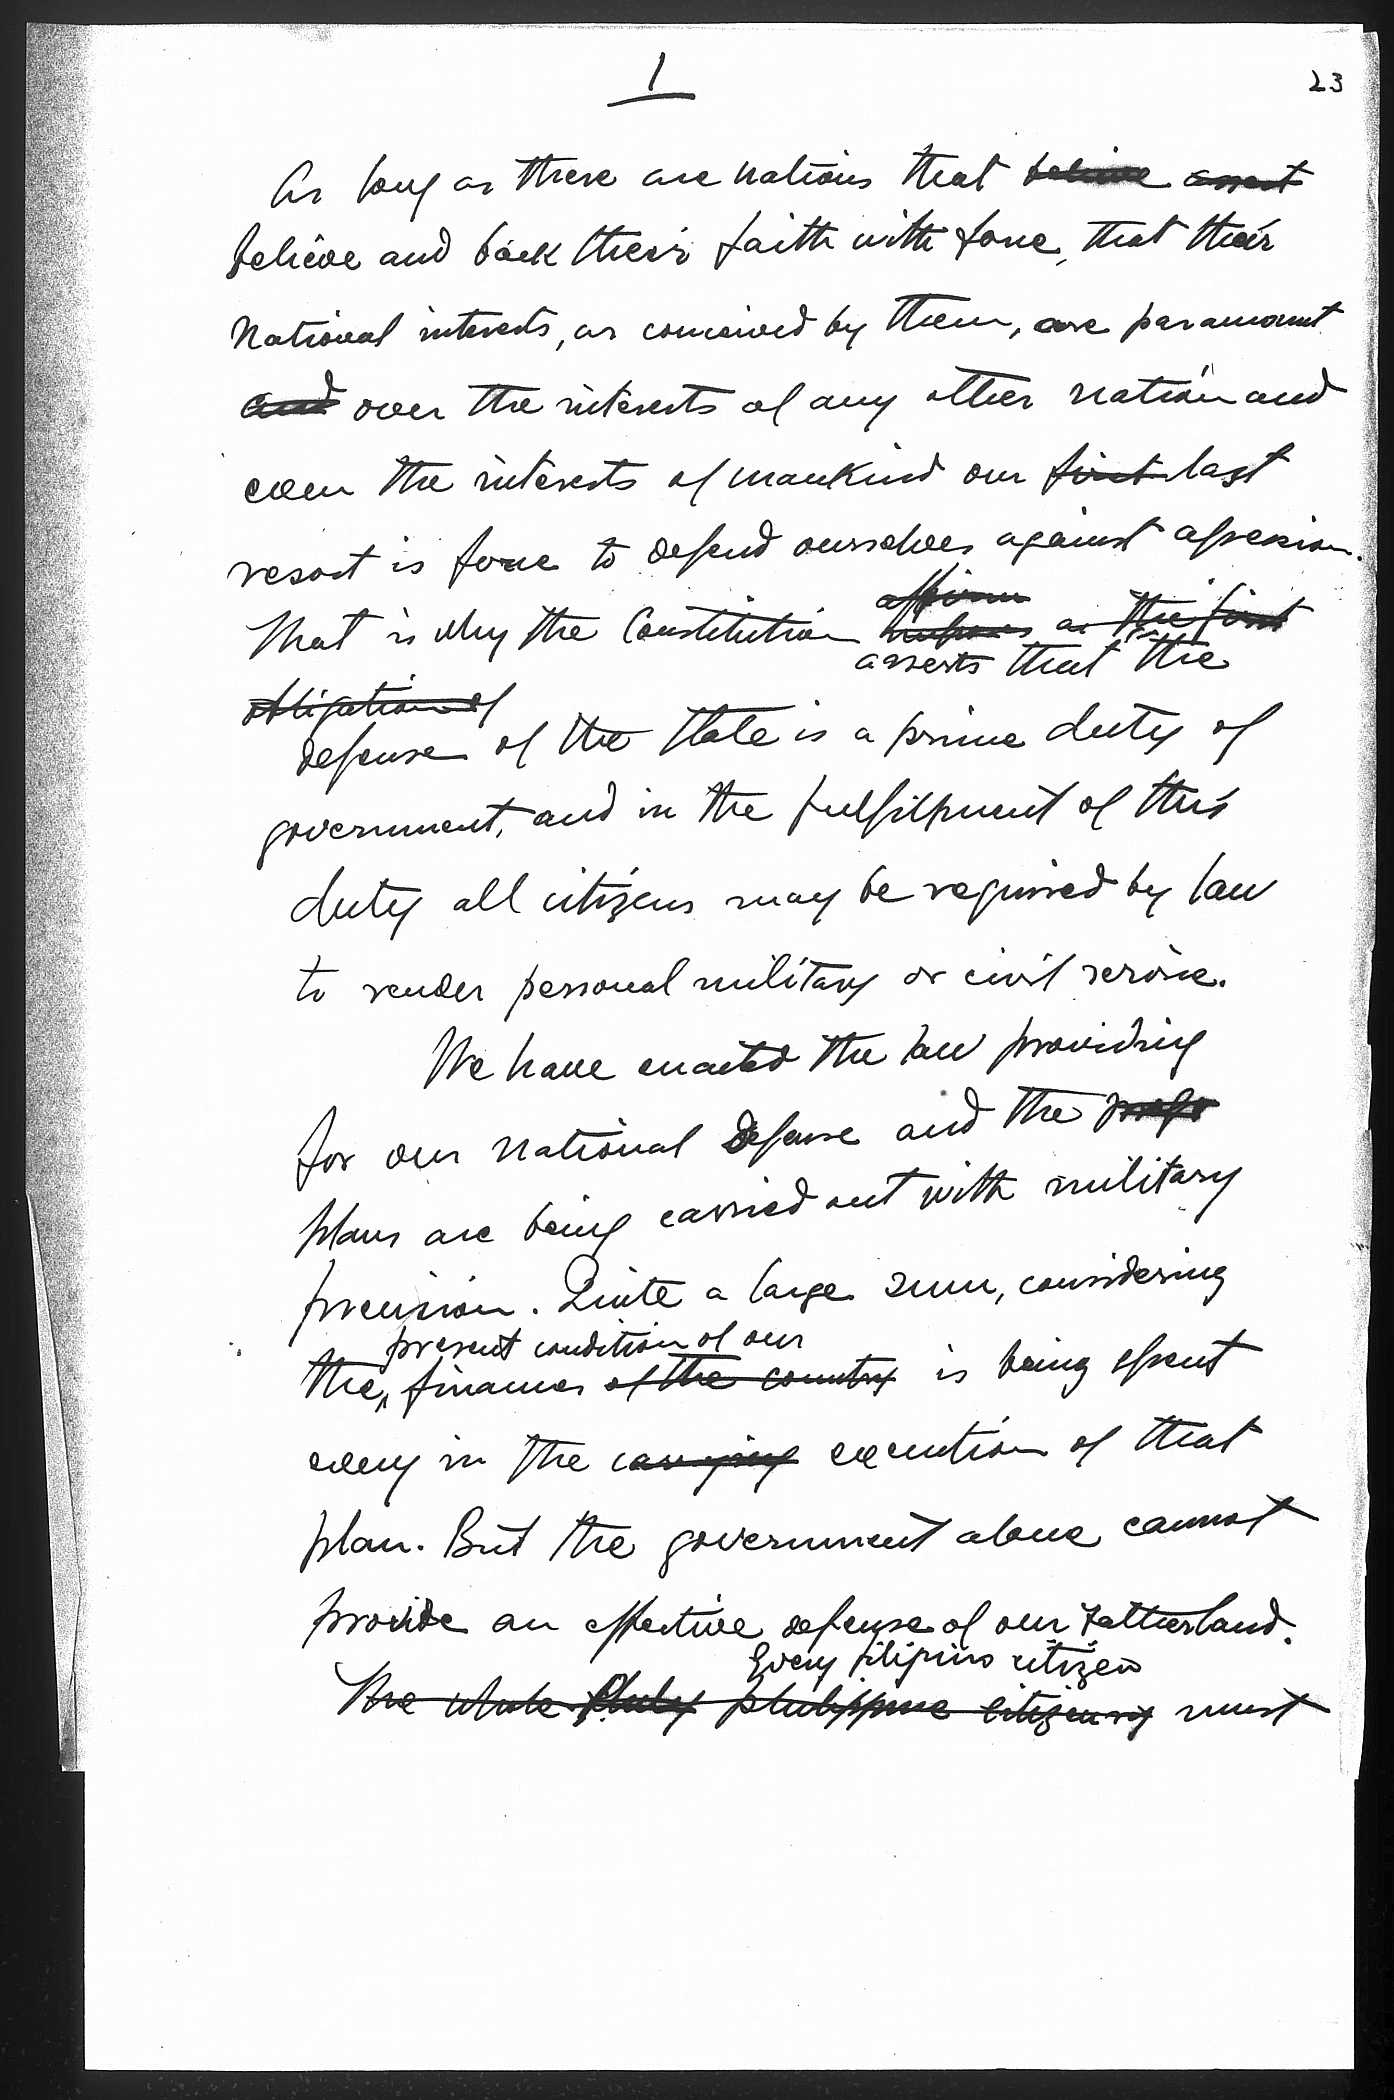 1
23
As long as there are nations that believe assert
believe and back their faith with force, that their
National interests, as conceived by them, are paramount
and over the interests of any other nation and
even the interests of mankind our first last
resort is force to defend ourselves against aggression.
affirms
That is why the Constitution imposes as the first
asserts that the
obligation of
defense of the State is a prime duty of
government, and in the fulfilment of this
duty all citizens may be required by law
to render personal military or civil service.
We have enacted the law providing
for our national defense and the
plans are being carried out with military
precision. Quite a large sum, considering
present condition of our
the finances of the country is being spent
every in the carrying execution of that
plan. But the government alone cannot
provide an effective defense of our Fatherland.
Every filipino citizen
The whole Philippine citizenry must